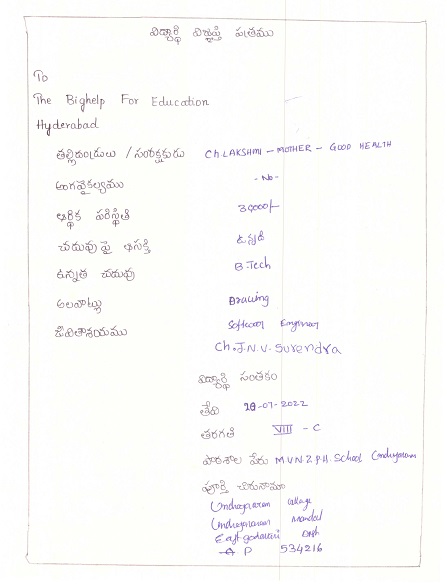 విద్యార్థి విజ్ఞప్తి పత్రము
To
The Bighelp For Education
Hyderabad
తల్లిదండ్రులు / సంరక్షకురు Ch.LAKSHMI - MOTHER - GOOD HEALTH
అంగవైకల్యము - No -
ఆర్థిక పరిస్థితి 30000/-
చదువు పై ఆసక్తి ఉన్నది
ఉన్నత చదువు B.Tech
అలవాట్లు Drawing
జీవితాశయము Softwear
Ch.J.N.V. Surendra
విద్యార్థి సంతకం
తేది -07-2022
తరగతి VIII - C
పాఠశాల పేరు M V N Z.P.H. School
పూర్తి చిరునామా
village
mandal
East godavari
A P 534216